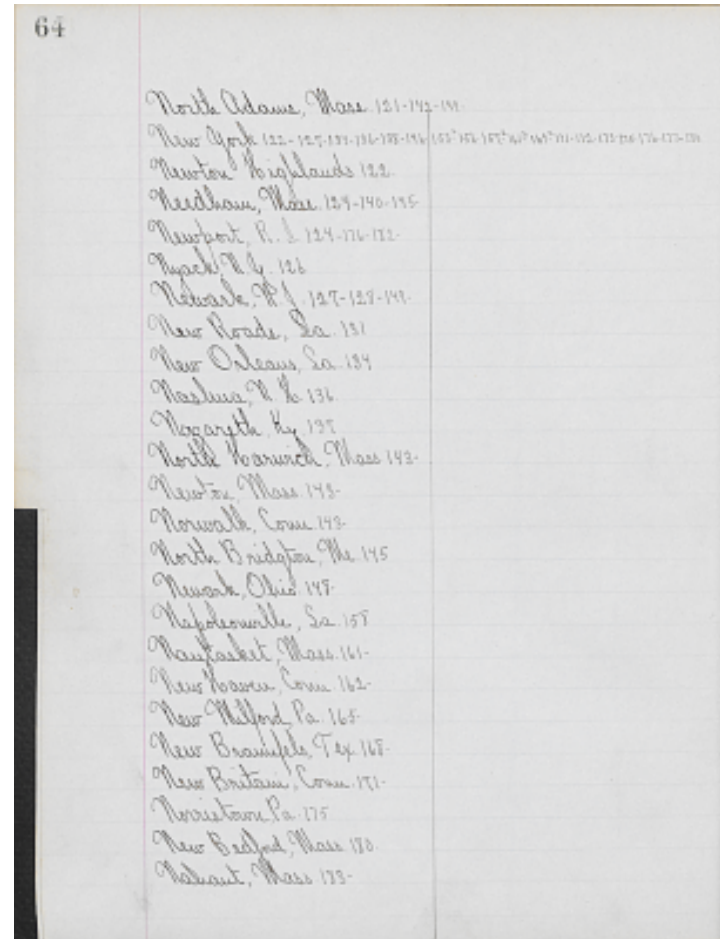 64
North Adams, Mass. 121-142-191-
New York 122-127-
Newton Highlands 122-
Needham, Mass. 124-140-145-
Newport, R.I. 124-176-182-
Nyack, N.Y. 126
Newark, N.J. 127-128-141-
New Roads, La. 131
New Orleans, La. 134
Nashua, N.H. 136
Nazareth, Ky. 138
North Harwich, Mass 143-
Newton, Mass. 143-
Norwalk, Conn 143-
North Bridgton, Me. 145
Newark, Ohio 148-
Napoleonville, La. 158
Nantasket, Mass. 161-
New Haven, Conn 162-
New Milford, Pa. 165-
New Braunfels, Tex 168-
New Britain, Conn. 171-
Norristown, Pa. 175
New Bedford, Mass 180
Nahant, Mass 183-